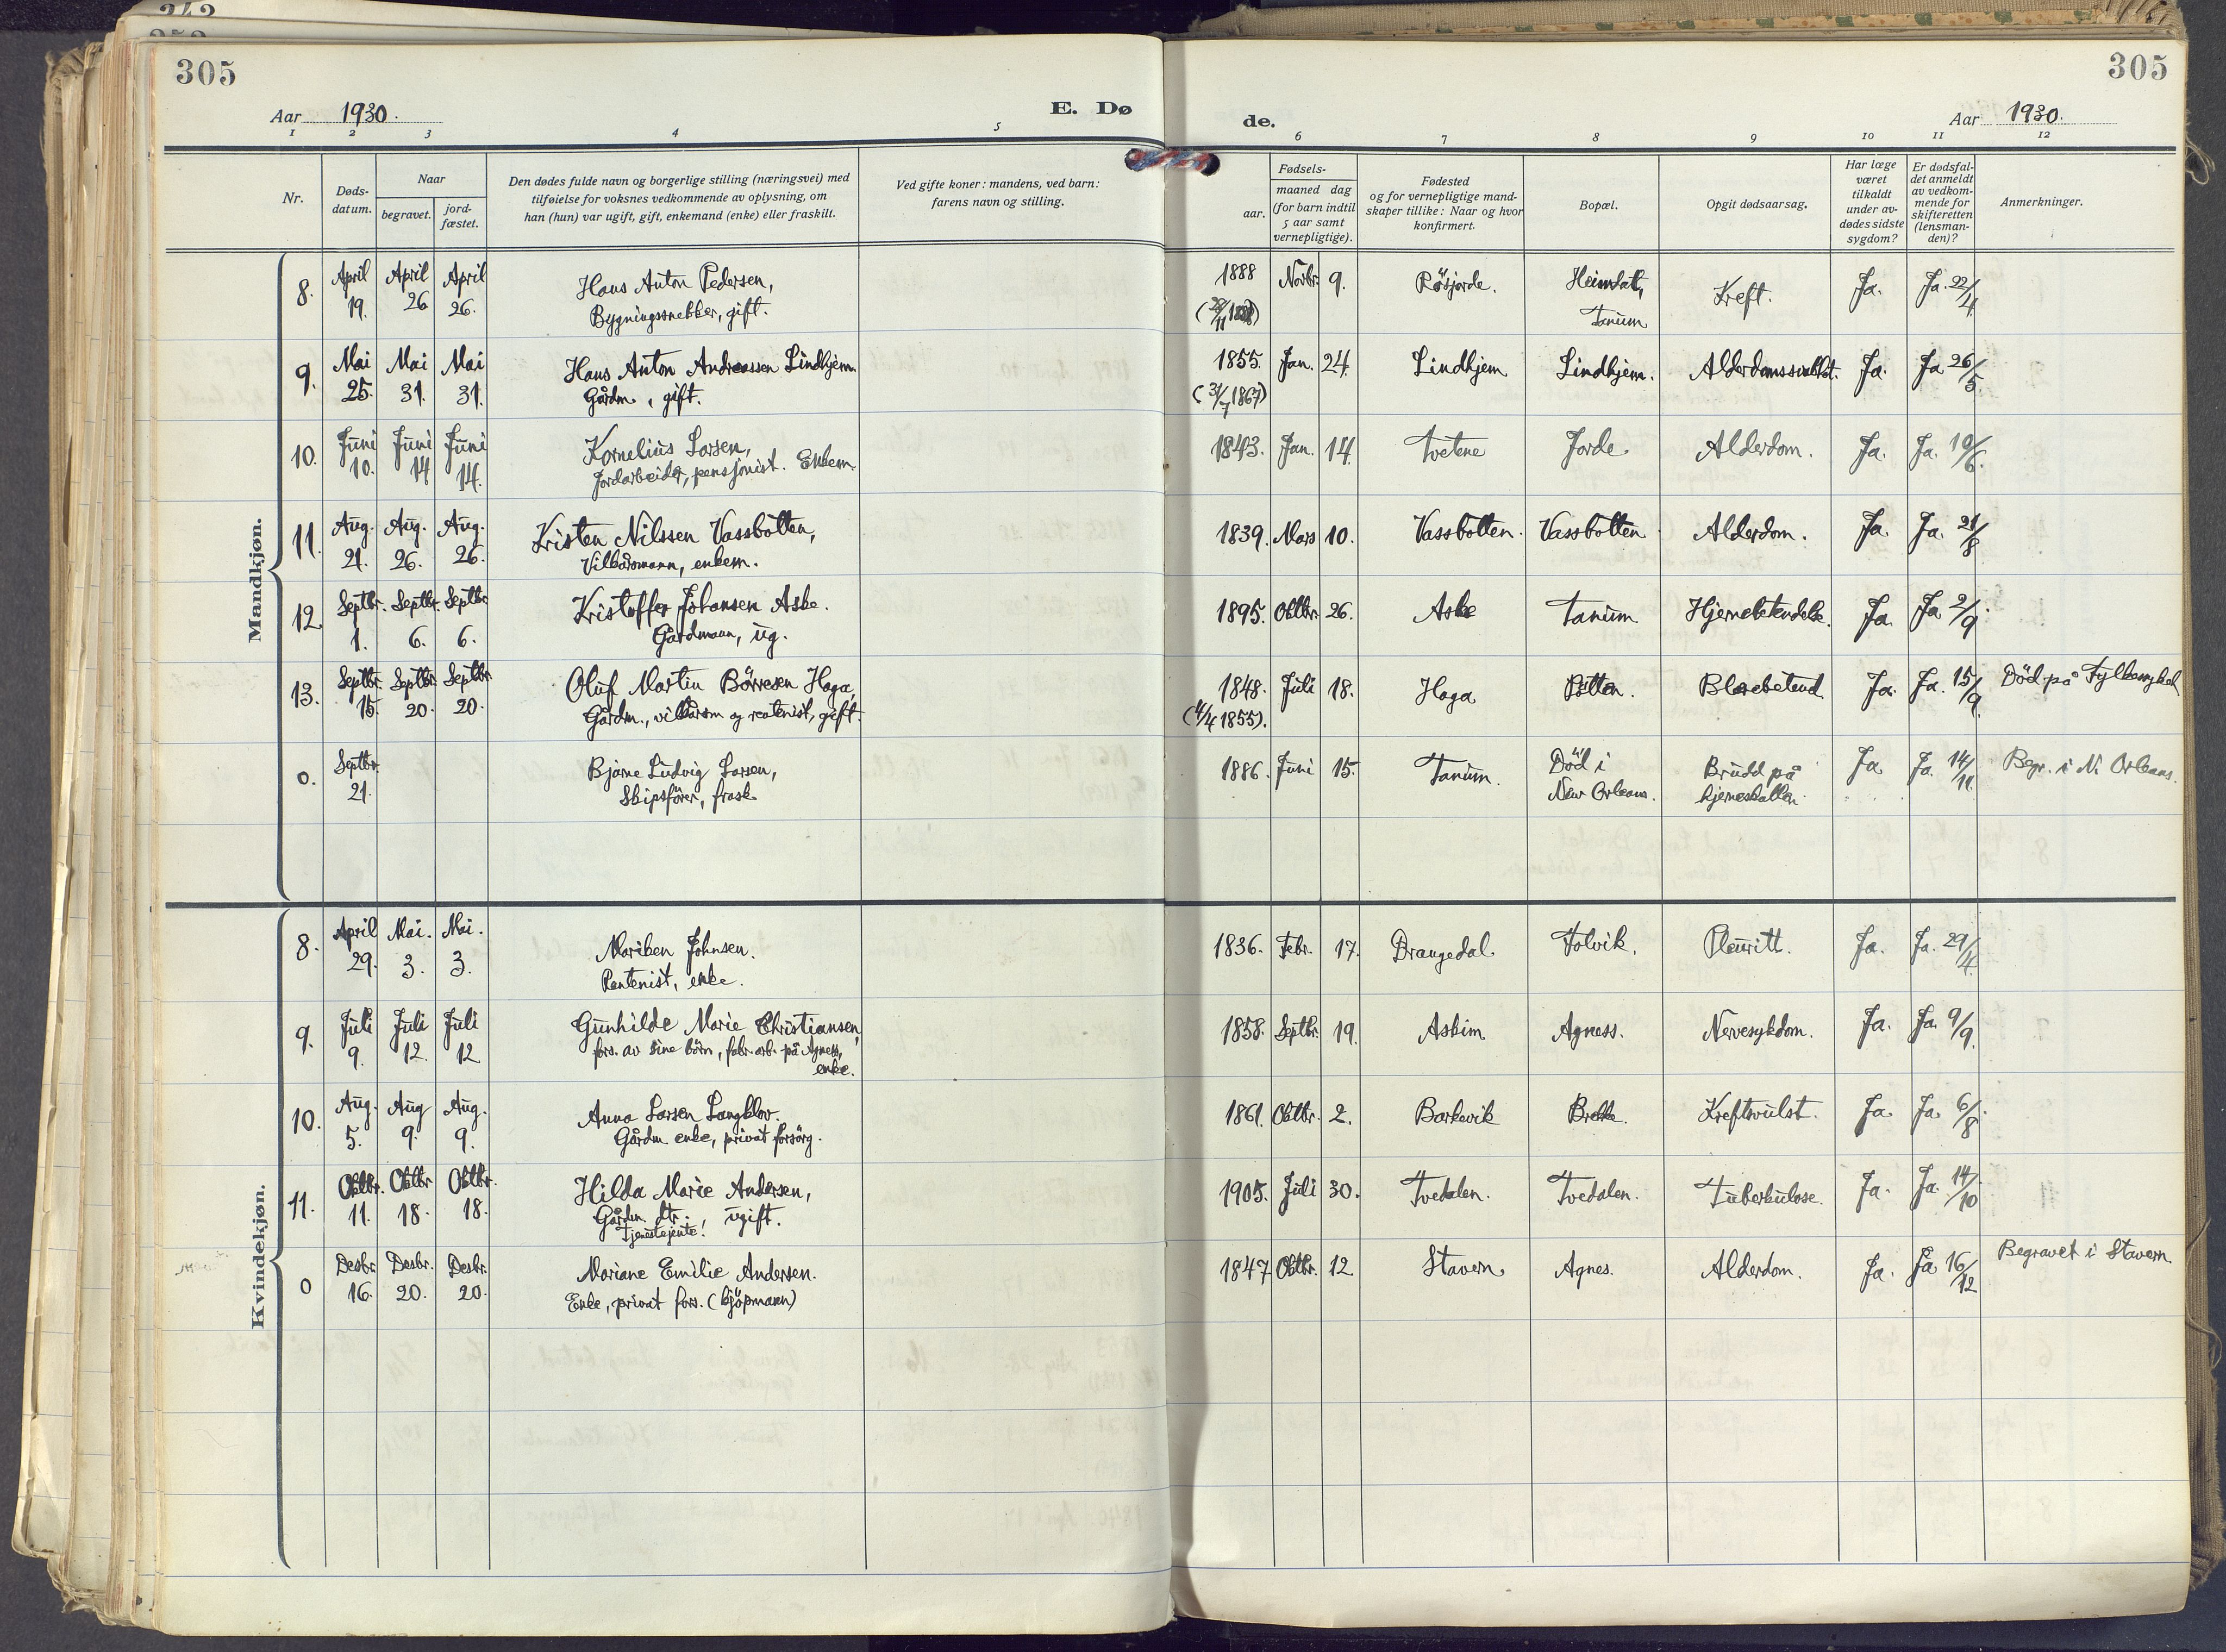 305
305
Aar 1930.
E. Dø
de.
Aar 1930.
1 2 3 4 5 6 7 8 9 10 11 12
Nr.
Døds-
datum.
Naar
begravet.
jord-
fæstet.
Den dødes fulde navn og borgerlige stilling (næringsvei) med
tilføielse for voksnes vedkommende av oplysning, om
han (hun) var ugift, gift, enkemand (enke) eller fraskilt.
Ved gifte koner: mandens, ved barn:
farens navn og stilling.
Fødsels-
aar.
maaned dag
(for barn indtil
5 aar samt
vernepligtige).
Fødested
og for vernepligtige mand-
skaper tillike: Naar og hvor
konfirmert.
Bopæl.
Opgit dødsaarsag.
Har læge
været
tilkaldt
under av-
dødes sidste
sygdom?
Er dødsfal-
det anmeldt
av vedkom-
mende for
skifteretten
(lensman-
den)?
Anmerkninger.
Mandkjøn.
8. April April April Hans Anton Pedersen, 1888 Novbr. 9. Røsjorde. Heimdal, Kreft. Ja. Ja. 22/4
19. 26 26. Bygningssnekker, gift. Tanum
9. Mai Mai Mai Hans Anton Andreassen Lindhjem. 1855. Jan. 24. Lindhjem Lindhjem. Ja. Ja 26/5
25. 31. 31. Gårdm., gift. (31/7 1867)
10. Juni Juni Juni Kornelius Larsen, 1843. Jan. 14. Tvetene Jorde. Alderdom. Ja. Ja. 10/6.
10. 14 14. Jordarbeider, pensjonist. Enkem.
11. Aug. Aug. Aug. Kristen Nilssen Vassbotten, 1839. Mars 10. Vassbotten. Vassbotten. Alderdom. Ja. Ja. 21/8
21. 26. 26. Vilkårsmann, enkem.
12. Septbr. Septbr. Septbr. Kristoffer Johansen Aske. 1895. Oktbr. 26. Aske Tanum Hjernebetendelse. Ja. Ja. 2/9.
1. 6. 6. Gårdmann, ug.
13. Septbr. Septbr. Septbr. Oluf Martin Börresen Haga, 1848. Juli 18. Haga Blærebetend. Ja. Ja. 15/9. Död på Fylkessykeh.
15. 20. 20. Gårdm., vilkårsm og rentenist, gift. (4/4 1855).
0. Septbr. Bjarne Ludvig Larsen, 1886. Juni 15. Tanum. Död i Brudd på Ja. Ja. 14/11. Begr. i N. Orleans.
21. Skipsfører, frask. New Orleans. hjerneskallen.
Kvindekjøn.
8. April Mai. Mai. Mariken Johnsen. 1836. Febr. 17. Drangedal. Folvik. Pleuritt. Ja. Ja. 29/4.
29. 3. 3. Rentenist, enke.
9. Juli Juli Juli Gunhilde Marie Christiansen, 1858. Septbr. 19. Askim Agness. Nervesykdom. Ja. Ja. 9/9.
9. 12. 12 fors. av sine börn, fabr. arb. på Agness,
enke.
10. Aug. Aug Aug. Anna Larsen Langklov. 1861. Oktbr. 2. Barkevik Brekke. Kreftsvulst. Ja. Ja. 6/8.
5. 9. 9. Gårdm enke, privat forsörg.
11. Oktbr. Oktbr Oktbr. Hilda Marie Andersen, 1905. Juli 30. Tvedalen. Tvedalen. Tuberkulose. Ja. Ja. 14/10
11. 18. 18. Gårdm. dtr., ugift.
Tjenestejente.
0 Desbr. Desbr. Desbr. Mariane Emilie Andersen. 1847 Oktbr. 12 Stavern Agnes. Alderdom. Ja. Ja 16/12 Begravet i Stavern.
16. 20. 20. Enke, privat fors. (kjöpmann)